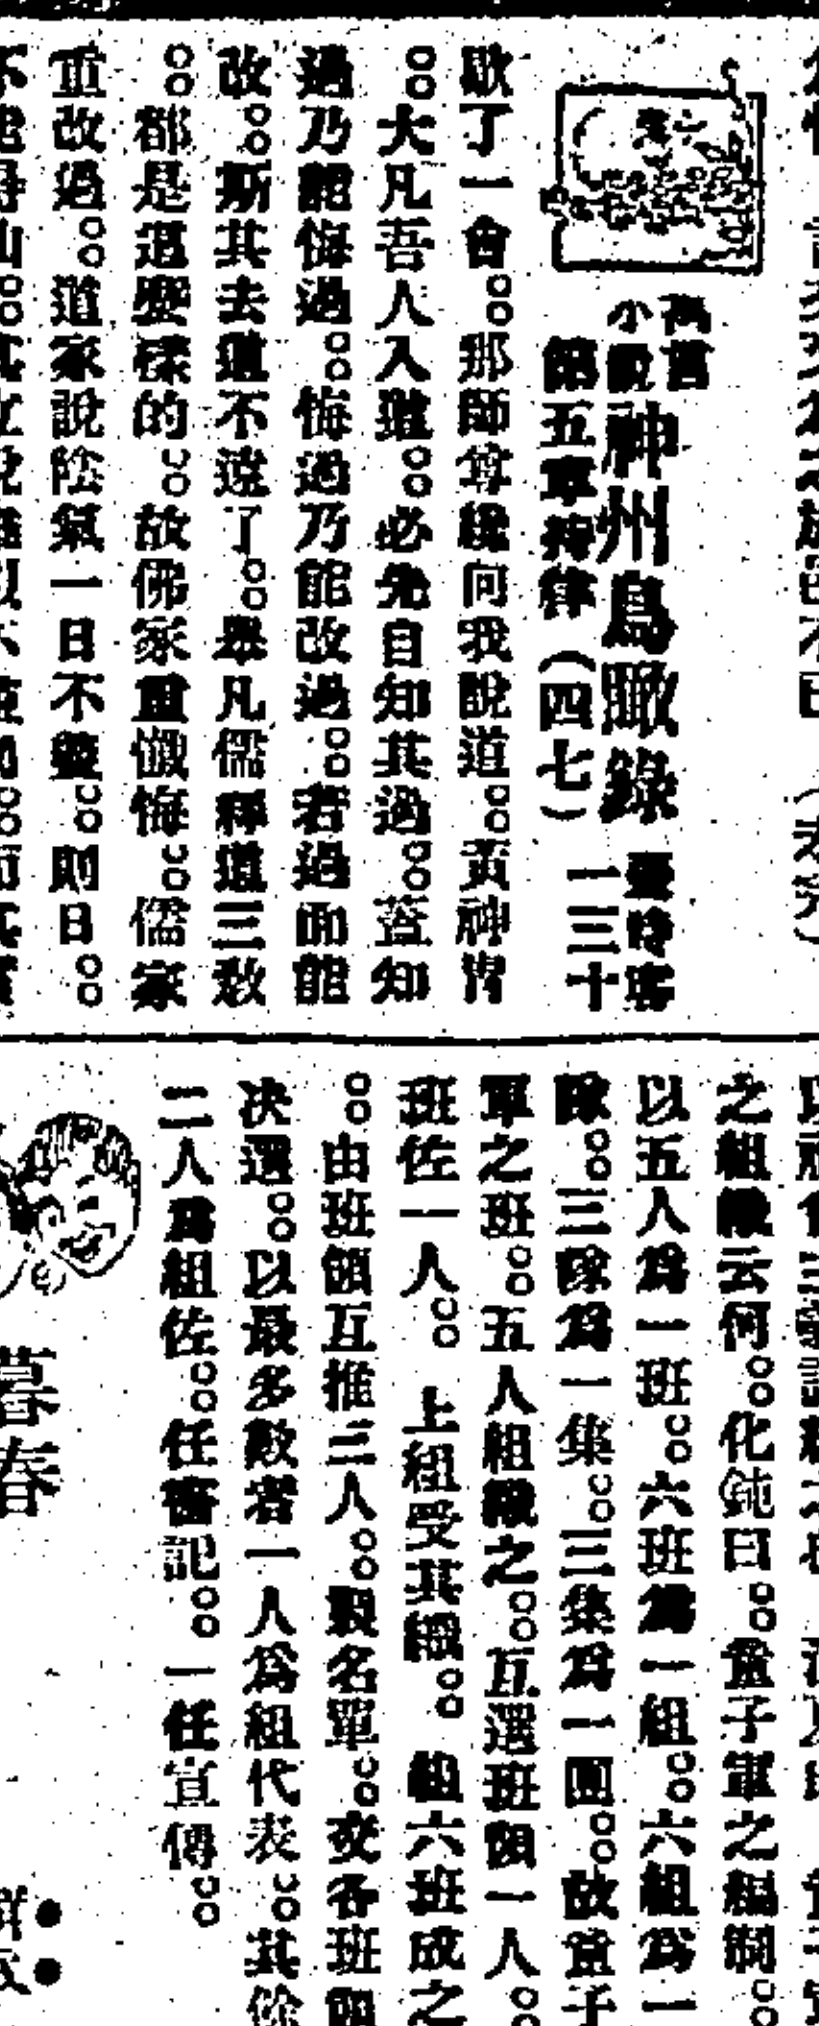 寓言
小說
神州鳥瞰錄
一三十
第五章 (四七)
歇了一會。。那師尊纔向我說道。。黃神胄
。。大凡吾人入道。。必先自知其過。。蓋知
過乃能悔過。。悔過乃能改過。。若過而能
改。。斯其去道不遠了。。舉凡儒釋道三教
。。都是這麼樣的。。故佛家重懺悔。。儒家
重改過。。道家說陰氣一日不盡。。則日。。
之組織云何。。化鈍曰。。童子軍之編制。。
以五人爲一班。。六班爲一組。。六組爲一
隊。。三隊爲一集。。三集爲一團。。故童子
軍之班。。五人組織之。。互選班領一人。。
班佐一人。。上組受其職。。組六班成之
。。由班領互推三人。。製名單。。交各班領
决選。。以最多數者一人爲組代表。。其餘
二人爲組佐。。任書記。。一任宣傳。。
暮春